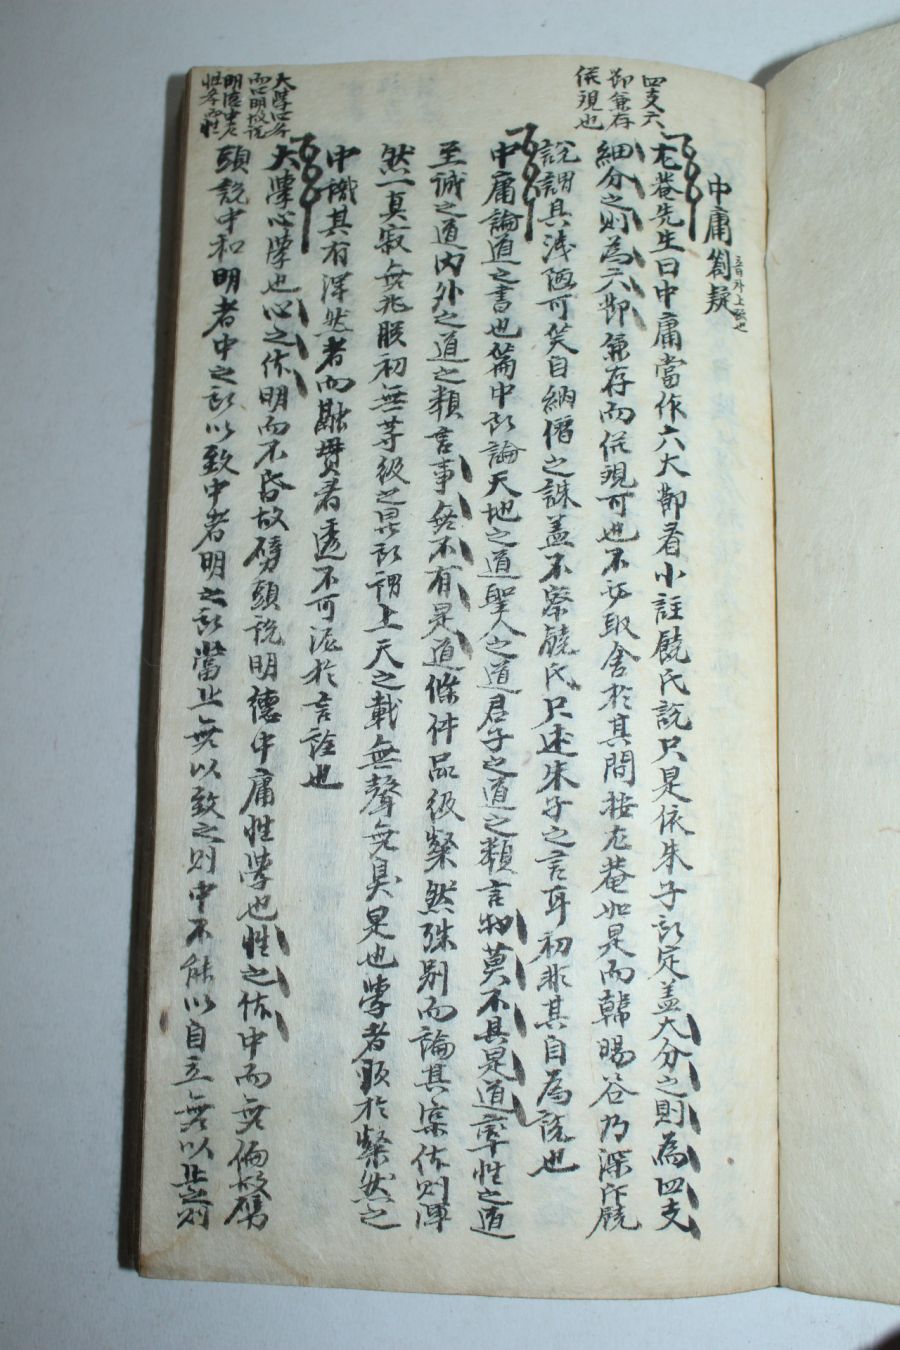 四支六
節兼存
俱現也
中庸箚疑
尤菴先生曰中庸當作六大節看小註饒氏說只是依朱子所定蓋大分之則為四支
細分之則為六節兼存而俱現可也不必取舍於其間按尤菴如是而韓暘谷乃深斥饒
說謂其淺陋可笑自納僭之誅蓋不察饒氏只述朱子之言耳初非其自為說也
中庸論道之書也篇中所論天地之道聖人之道君子之道之類言物莫不具是道率性之道
至誠之道內外之道之類言事無不有是道條件品級粲然殊別而論其實体則渾
然一真寂無兆眹初無等級之　所謂上天之載無聲無臭是也學者須於粲然之
中識其有渾然者而融貫看透不可泥於言詮也
大學心學也心之体明而不昏故劈頭說明德中庸性學也性之体中而無偏故劈
頭說中和明者中之所以致中者明之所當止無以致之則中不能以自立無以止之則
大學
而心明故說
明德中